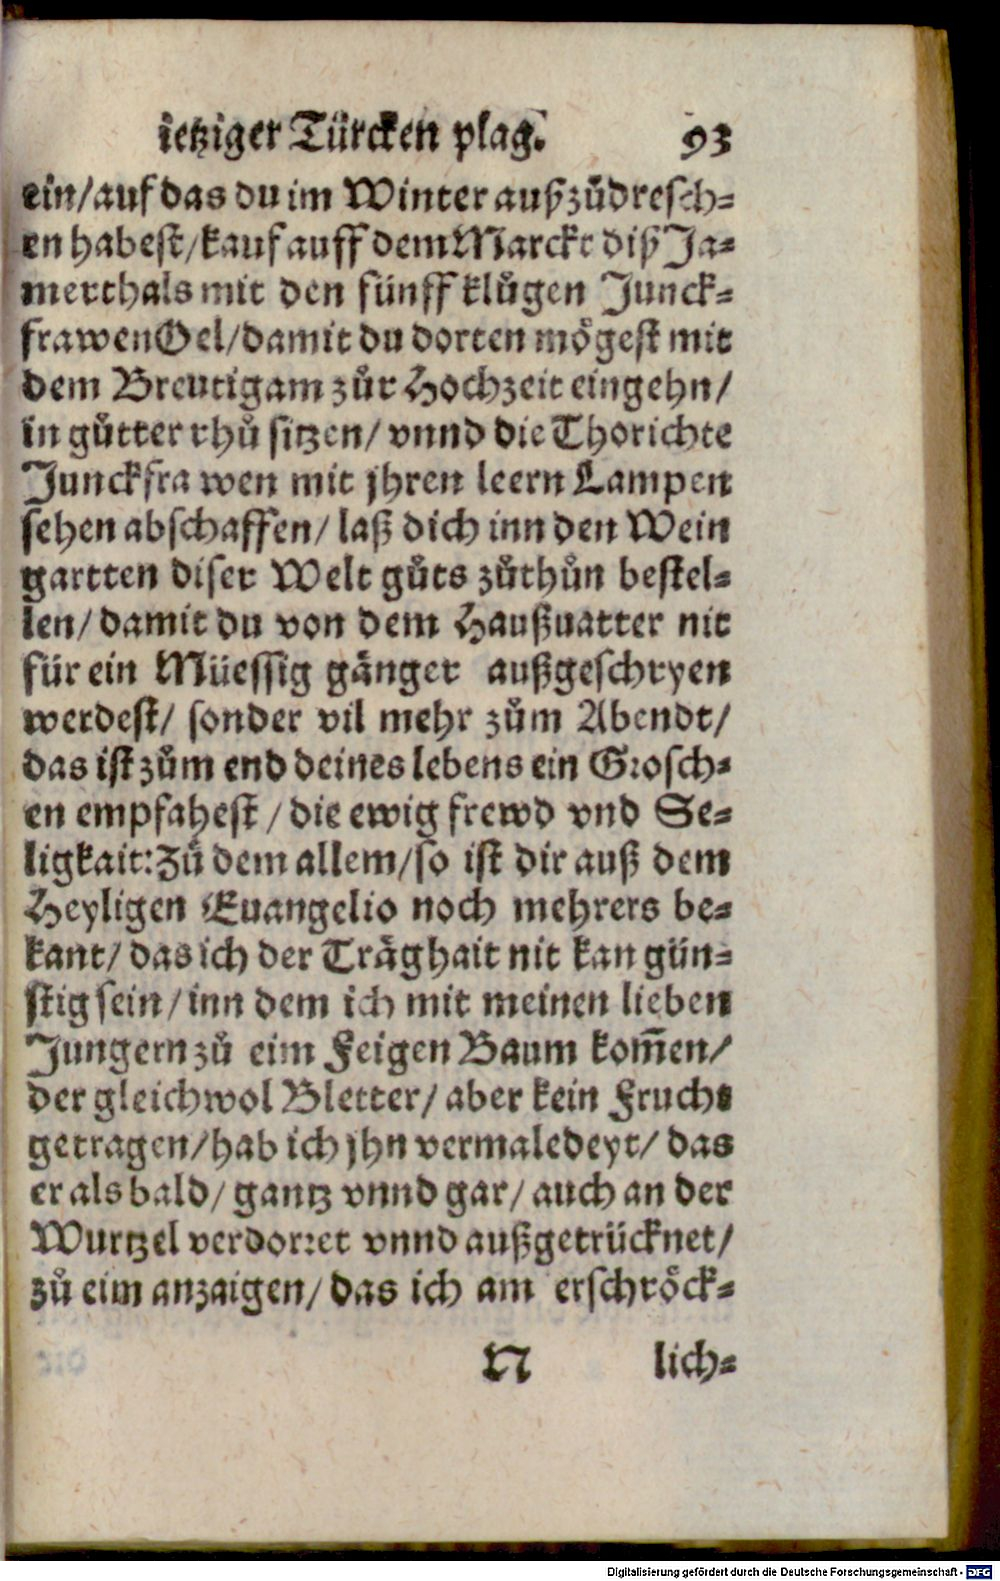 ietziger Türcken plag. 93
ein/auf das du im Winter außzůdresch⸗
en habest/kauf auff dem Marckt diß Ja⸗
merthals mit den fünff klůgen Junck⸗
frawen Oel/damit du dorten mögest mit
dem Breutigam zůr Hochzeit eingehn/
in gůtter rhů sitzen/ vnnd die Thorichte
Junckfrawen mit jhren leern Lampen
sehen abschaffen/ laß dich inn den Wein
gartten diser Welt gůts zůthůn bestel⸗
len/ damit du von dem Haußuatter nit
für ein Müessig gänger außgeschryen
werdest/ sonder vil mehr zům Abendt/
das ist zům end deines lebens ein Grosch⸗
en empfahest / die ewig frewd vnd Se⸗
ligkait: Zů dem allem/so ist dir auß dem
Heyligen Euangelio noch mehrers be⸗
kant/ das ich der Träghait nit kan gün⸗
stig sein/ inn dem ich mit meinen lieben
Jungern zů eim Feigen Baum kom̅en/
der gleichwol Bletter/ aber kein Frucht
getragen/hab ich jhn vermaledeyt/ das
er als bald/ gantz vnnd gar/ auch an der
Wurtzel verdorꝛet vnnd außgetrücknet/
zů eim anzaigen/ das ich am erschröck⸗
N lich⸗
Digitalisierung gefördert durch die Deutsche Forschungsgemeinschaft - DFG